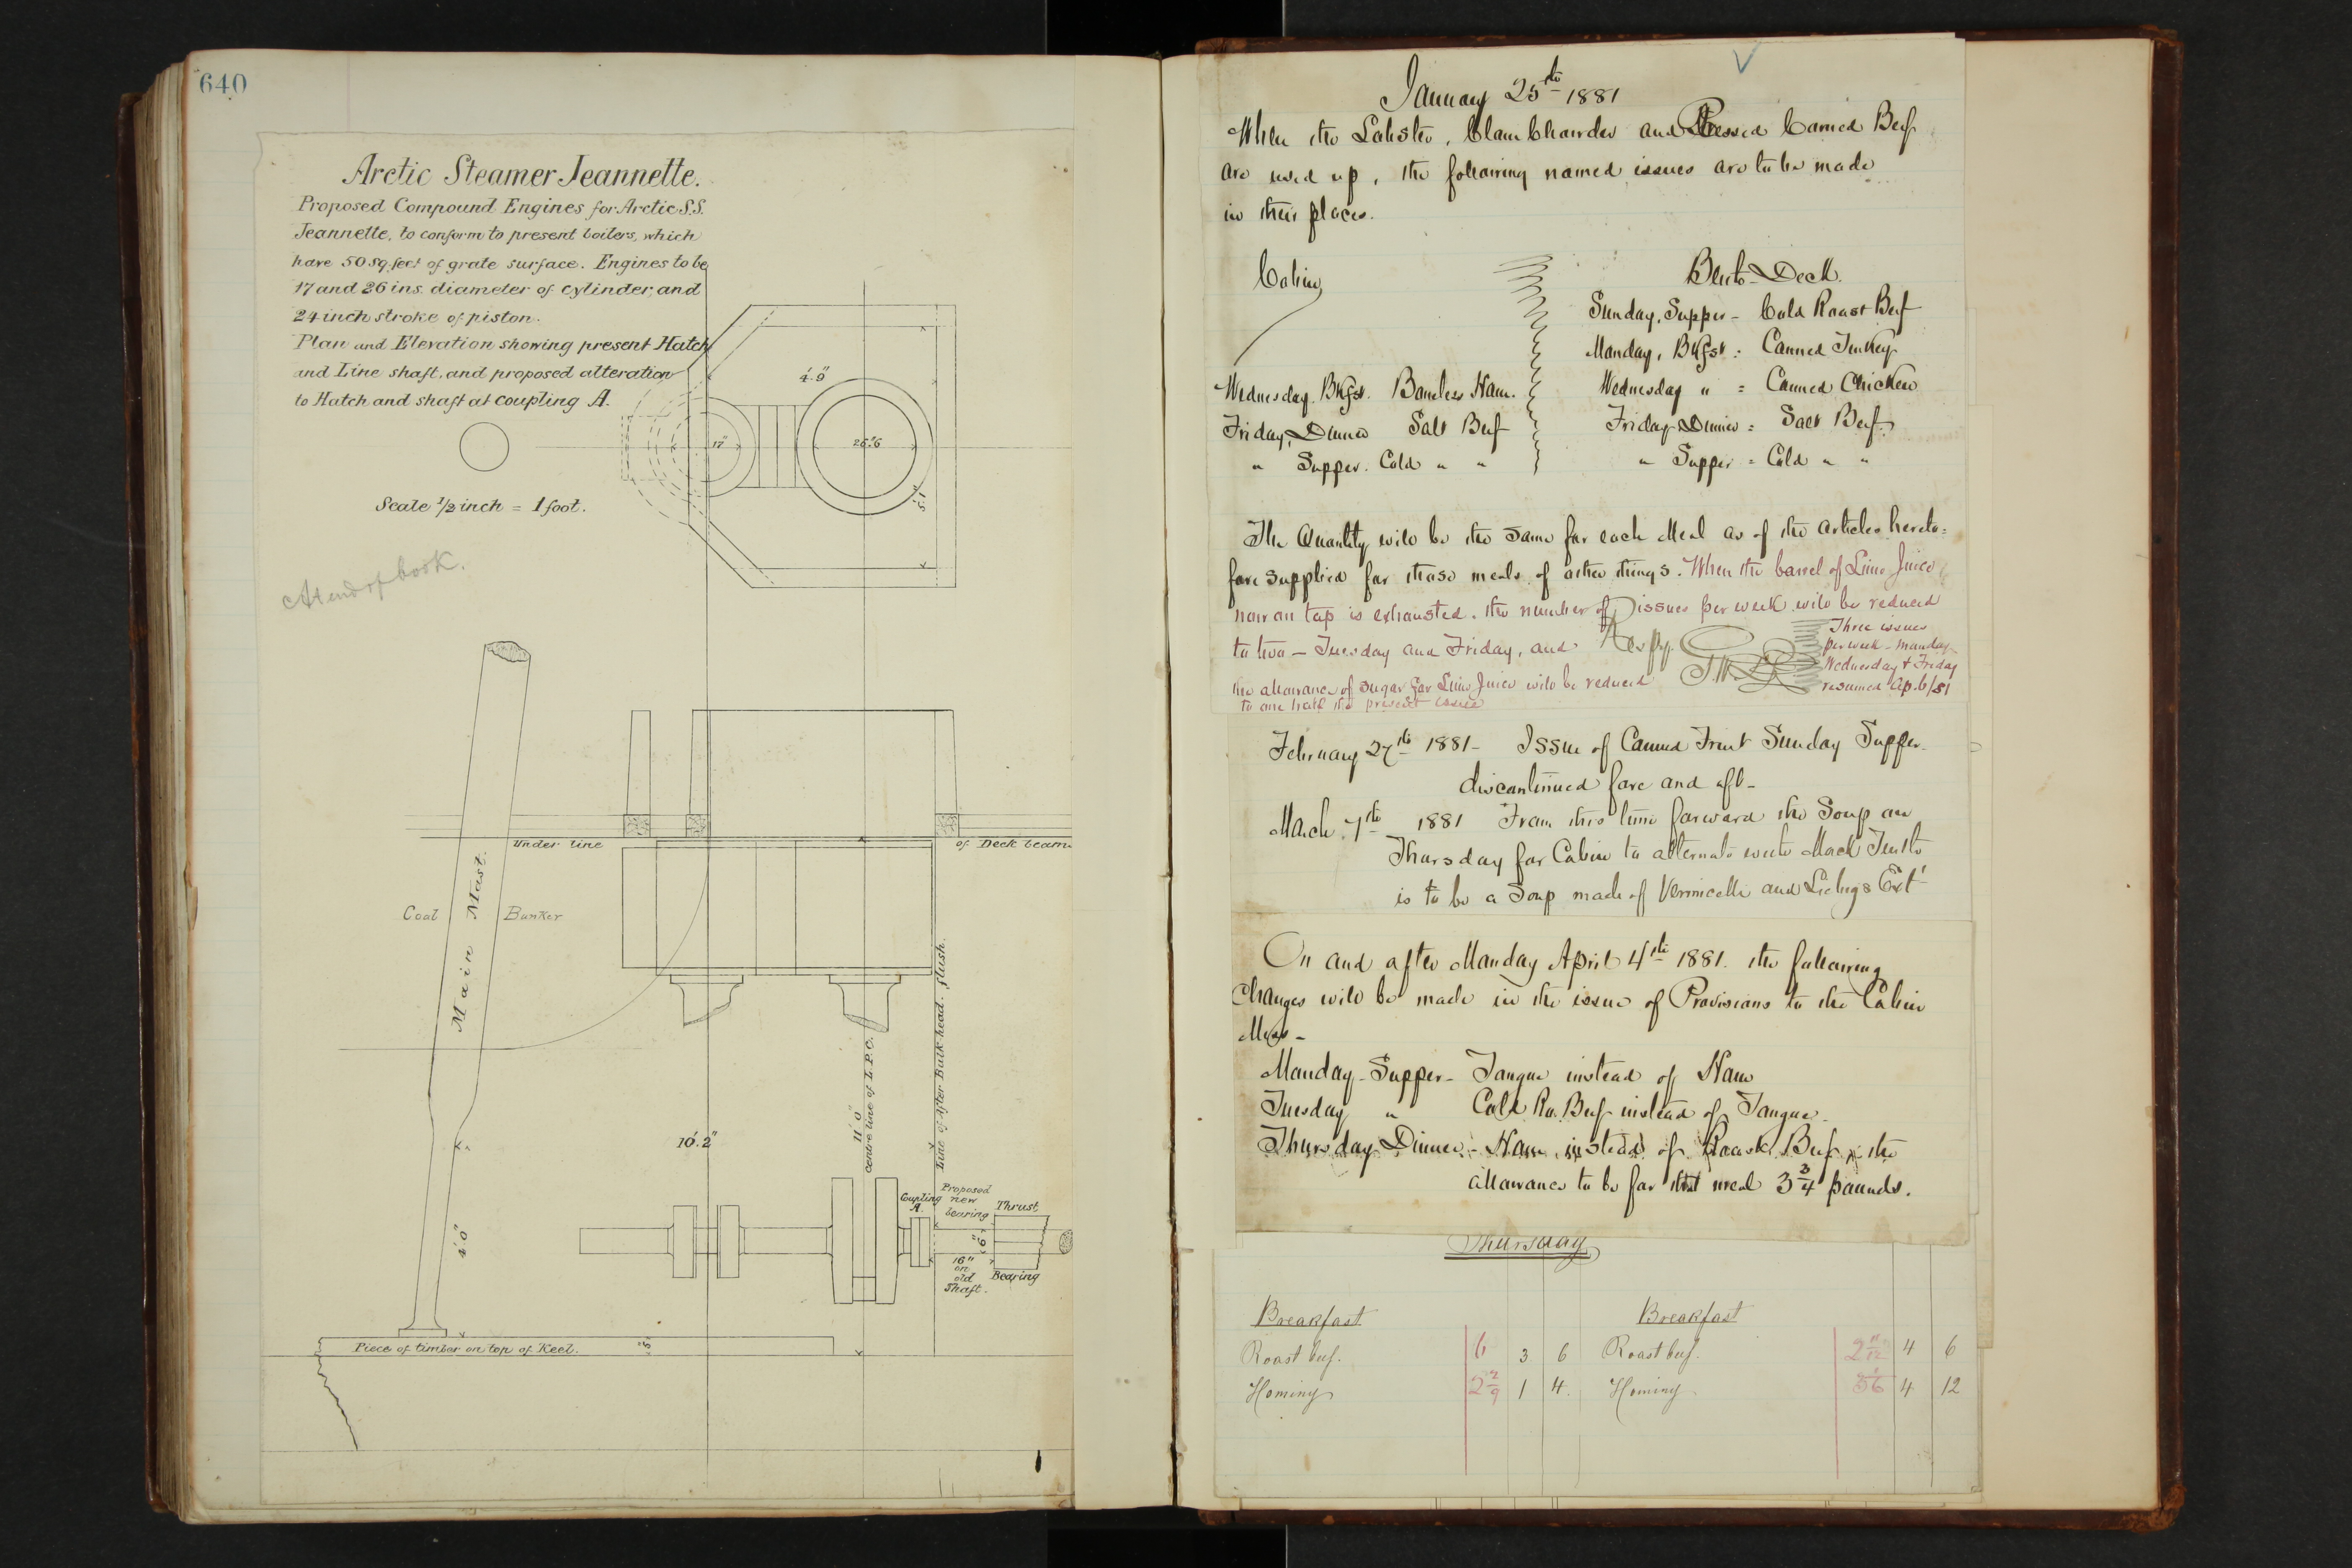 640
Arctic Steamer Jeannette.
Proposed Compound Engines for Arctic S.S.
Jeannette, to conform to present boilers, which
have 50 sq. feet of grate surface. Engines to be
17 and 26 ins. diameter of cylinder, and
24 inch stroke of piston.
Plan and Elevation showing present Hatch
and Line shaft, and proposed alteration
to Hatch and shaft at coupling A.
4'.9"
17"
26"
5'.1"
Scale 1/2 inch = 1 foot.
At end of book.
Under line
of Deck beam
Coal
Bunker
Main Mast.
10'.2"
11'.0"
centre line of L.P.C.
Line of After Bulk-head. flush.
4'.0"
Coupling
A.
Proposed
new
bearing
Thrust
6"
16"
on
old
Shaft.
Bearing
Piece of timber on top of Keel.
January 25th 1881
When the Lobster, Clam Chowder and Pressed Corned Beef
are used up, the following named issues are to be made
in their places.
Cabin
Wednesday, Bkfst. Boneless Ham.
Friday, Dinner Salt Beef
" Supper. Cold " "
Berth-Deck.
Sunday, Supper - Cold Roast Beef
Monday, Bkfst: Canned Turkey
Wednesday " = Canned Chicken
Friday Dinner = Salt Beef.
" Supper = Cold " "
The Quantity will be the same for each Meal as of the articles hereto=
fore supplied for those meals of other things. When the barrel of Lime Juice
now on tap is exhausted, the number of issues per week will be reduced
to two - Tuesday and Friday, and
the allowance of sugar for Lime Juice will be reduced
to one half the present issue
Three issues
per week - Monday
Wednesday & Friday
resumed Ap. 6/81
February 27th 1881 - Issue of Canned Fruit Sunday Supper
discontinued fore and aft -
March 7th 1881 From this time forward the Soup on
Thursday for Cabin to alternate with Mock Turtle
is to be a Soup made of Vermicelli and Liebigs Ext
On and after Monday April 4th 1881. the following
changes will be made in the issue of Provisions to the Cabin
Mess -
Monday - Supper - Tongue instead of Ham
Tuesday " Cold Ro. Beef instead of Tongue -
Thursday Dinner - Ham, instead of Roast Beef, the
allowance to be for that meal 3 3/4 pounds.
Thursday
Breakfast
Roast beef. 6 3 6
Hominy 2 2/9 1 4
Breakfast
Roast beef. 2 11/12 4 6
Hominy 4 12